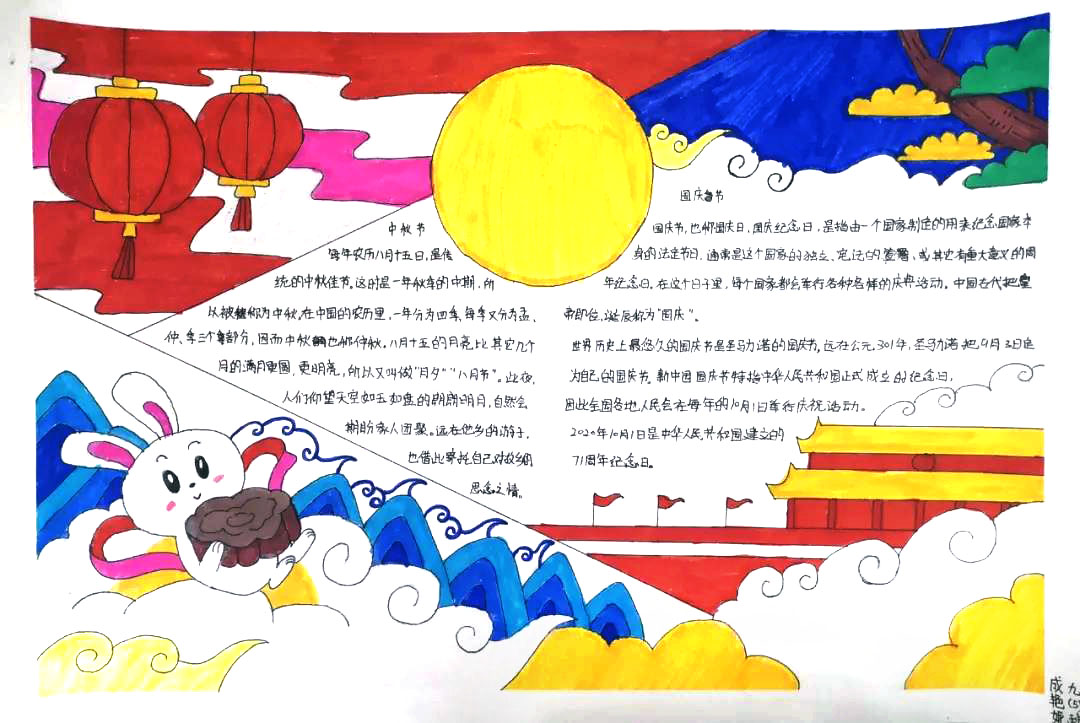 中秋节
每年农历八月十五日,是传
统的中秋佳节。这时是一年秋季的中期,所
以被称为中秋,在中国的农历里,一年分为四季,每季又分为孟、
仲、季三个部分,因而中秋也称仲秋。八月十五的月亮比其它几个
月的满月更圆,更明亮,所以又叫做"月夕""八月节"。此夜,
人们仰望天空如玉如盘的朗朗明月,自然会
期盼家人团聚。远在他乡的游子,
也借此寄托自己对故乡的
思念之情。
国庆节
国庆节,也称国庆日、国庆纪念日,是指由一个国家制定的用来纪念国家本
身的法定节日,通常是这个国家的独立、宪法的签署、或其它有重大意义的周
年纪念日。在这个日子里,每个国家都会举行各种各样的庆典活动。中国古代把皇
帝即位、诞辰称为"国庆"。
世界历史上最悠久的国庆节是圣马力诺的国庆节,远在公元.301年,圣马力诺把9月3日定
为自己的国庆节。新中国国庆节特指中华人民共和国正式成立的纪念日,
因此全国各地人民会在每年的10月1日举行庆祝活动。
2020年10月1日是中华人民共和国建立的
71周年纪念日。
九(5
成艳